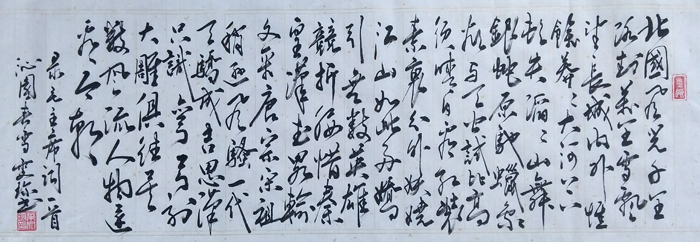 北國風光千里
冰封萬里雪飄
望長城內外惟
餘莽〻大河上下
頓失滔〻山舞
銀蛇原馳蠟象
欲與天公試比高
須晴日看紅裝
素裹分外妖嬈
江山如此多嬌
引無數英雄
競折腰惜秦
皇漢武略輸
文采唐宗宋祖
稍遜風騷一代
天驕成吉思漢
只識彎弓射
大雕俱往矣
數風流人物還
看今朝
录毛主席詞一首
沁園春雪